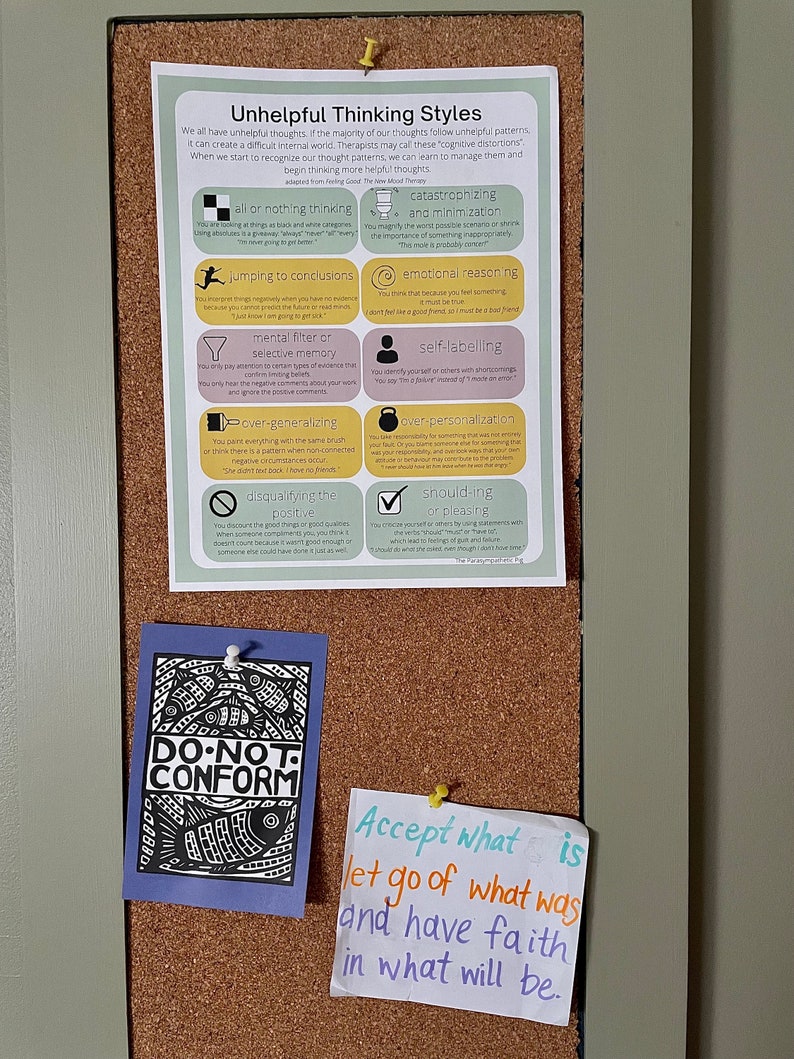 Unhelpful Thinking Styles
We all have unhelpful thoughts. If the majority of our thoughts follow unhelpful patterns,
it can create a difficult internal world. Therapists may call these "cognitive distortions".
When we start to recognize our thought patterns, we can learn to manage them and
begin thinking more helpful thoughts.
adapted from Feeling Good: The New Mood Therapy
all or nothing thinking
You are looking at things as black and white categories.
Using absolutes is a giveaway: "always" "never" "all" "every."
"I'm never going to get better."
catastrophizing
and minimization
You magnify the worst possible scenario or shrink
the importance of something inappropriately.
"This mole is probably cancer!"
jumping to conclusions
You interpret things negatively when you have no evidence
because you cannot predict the future or read minds.
"I just know I am going to get sick."
emotional reasoning
You think that because you feel something,
it must be true.
I don't feel like a good friend, so I must be a bad friend
mental filter or
selective memory
You only pay attention to certain types of evidence that
confirm limiting beliefs.
You only hear the negative comments about your work
and ignore the positive comments.
self-labelling
You identify yourself or others with shortcomings.
You say "I'm a failure" instead of "I made an error."
over-generalizing
You paint everything with the same brush
or think there is a pattern when non-connected
negative circumstances occur.
"She didn't text back. I have no friends."
over-personalization
You take responsibility for something that was not entirely
your fault. Or you blame someone else for something that
was your responsibility, and overlook ways that your own
attitude or behaviour may contribute to the problem.
"I never should have let him leave when he was that angry."
disqualifying the
positive
You discount the good things or good qualities.
When someone compliments you, you think it
doesn't count because it wasn't good enough or
someone else could have done it just as well.
should-ing
or pleasing
You criticize yourself or others by using statements with
the verbs "should" "must" or "have to",
which lead to feelings of guilt and failure.
"I should do what she asked, even though I don't have time."
The Parasympathetic Pig
DO·NOT·
CONFORM
Accept what is
let go of what was
and have faith
in what will be.